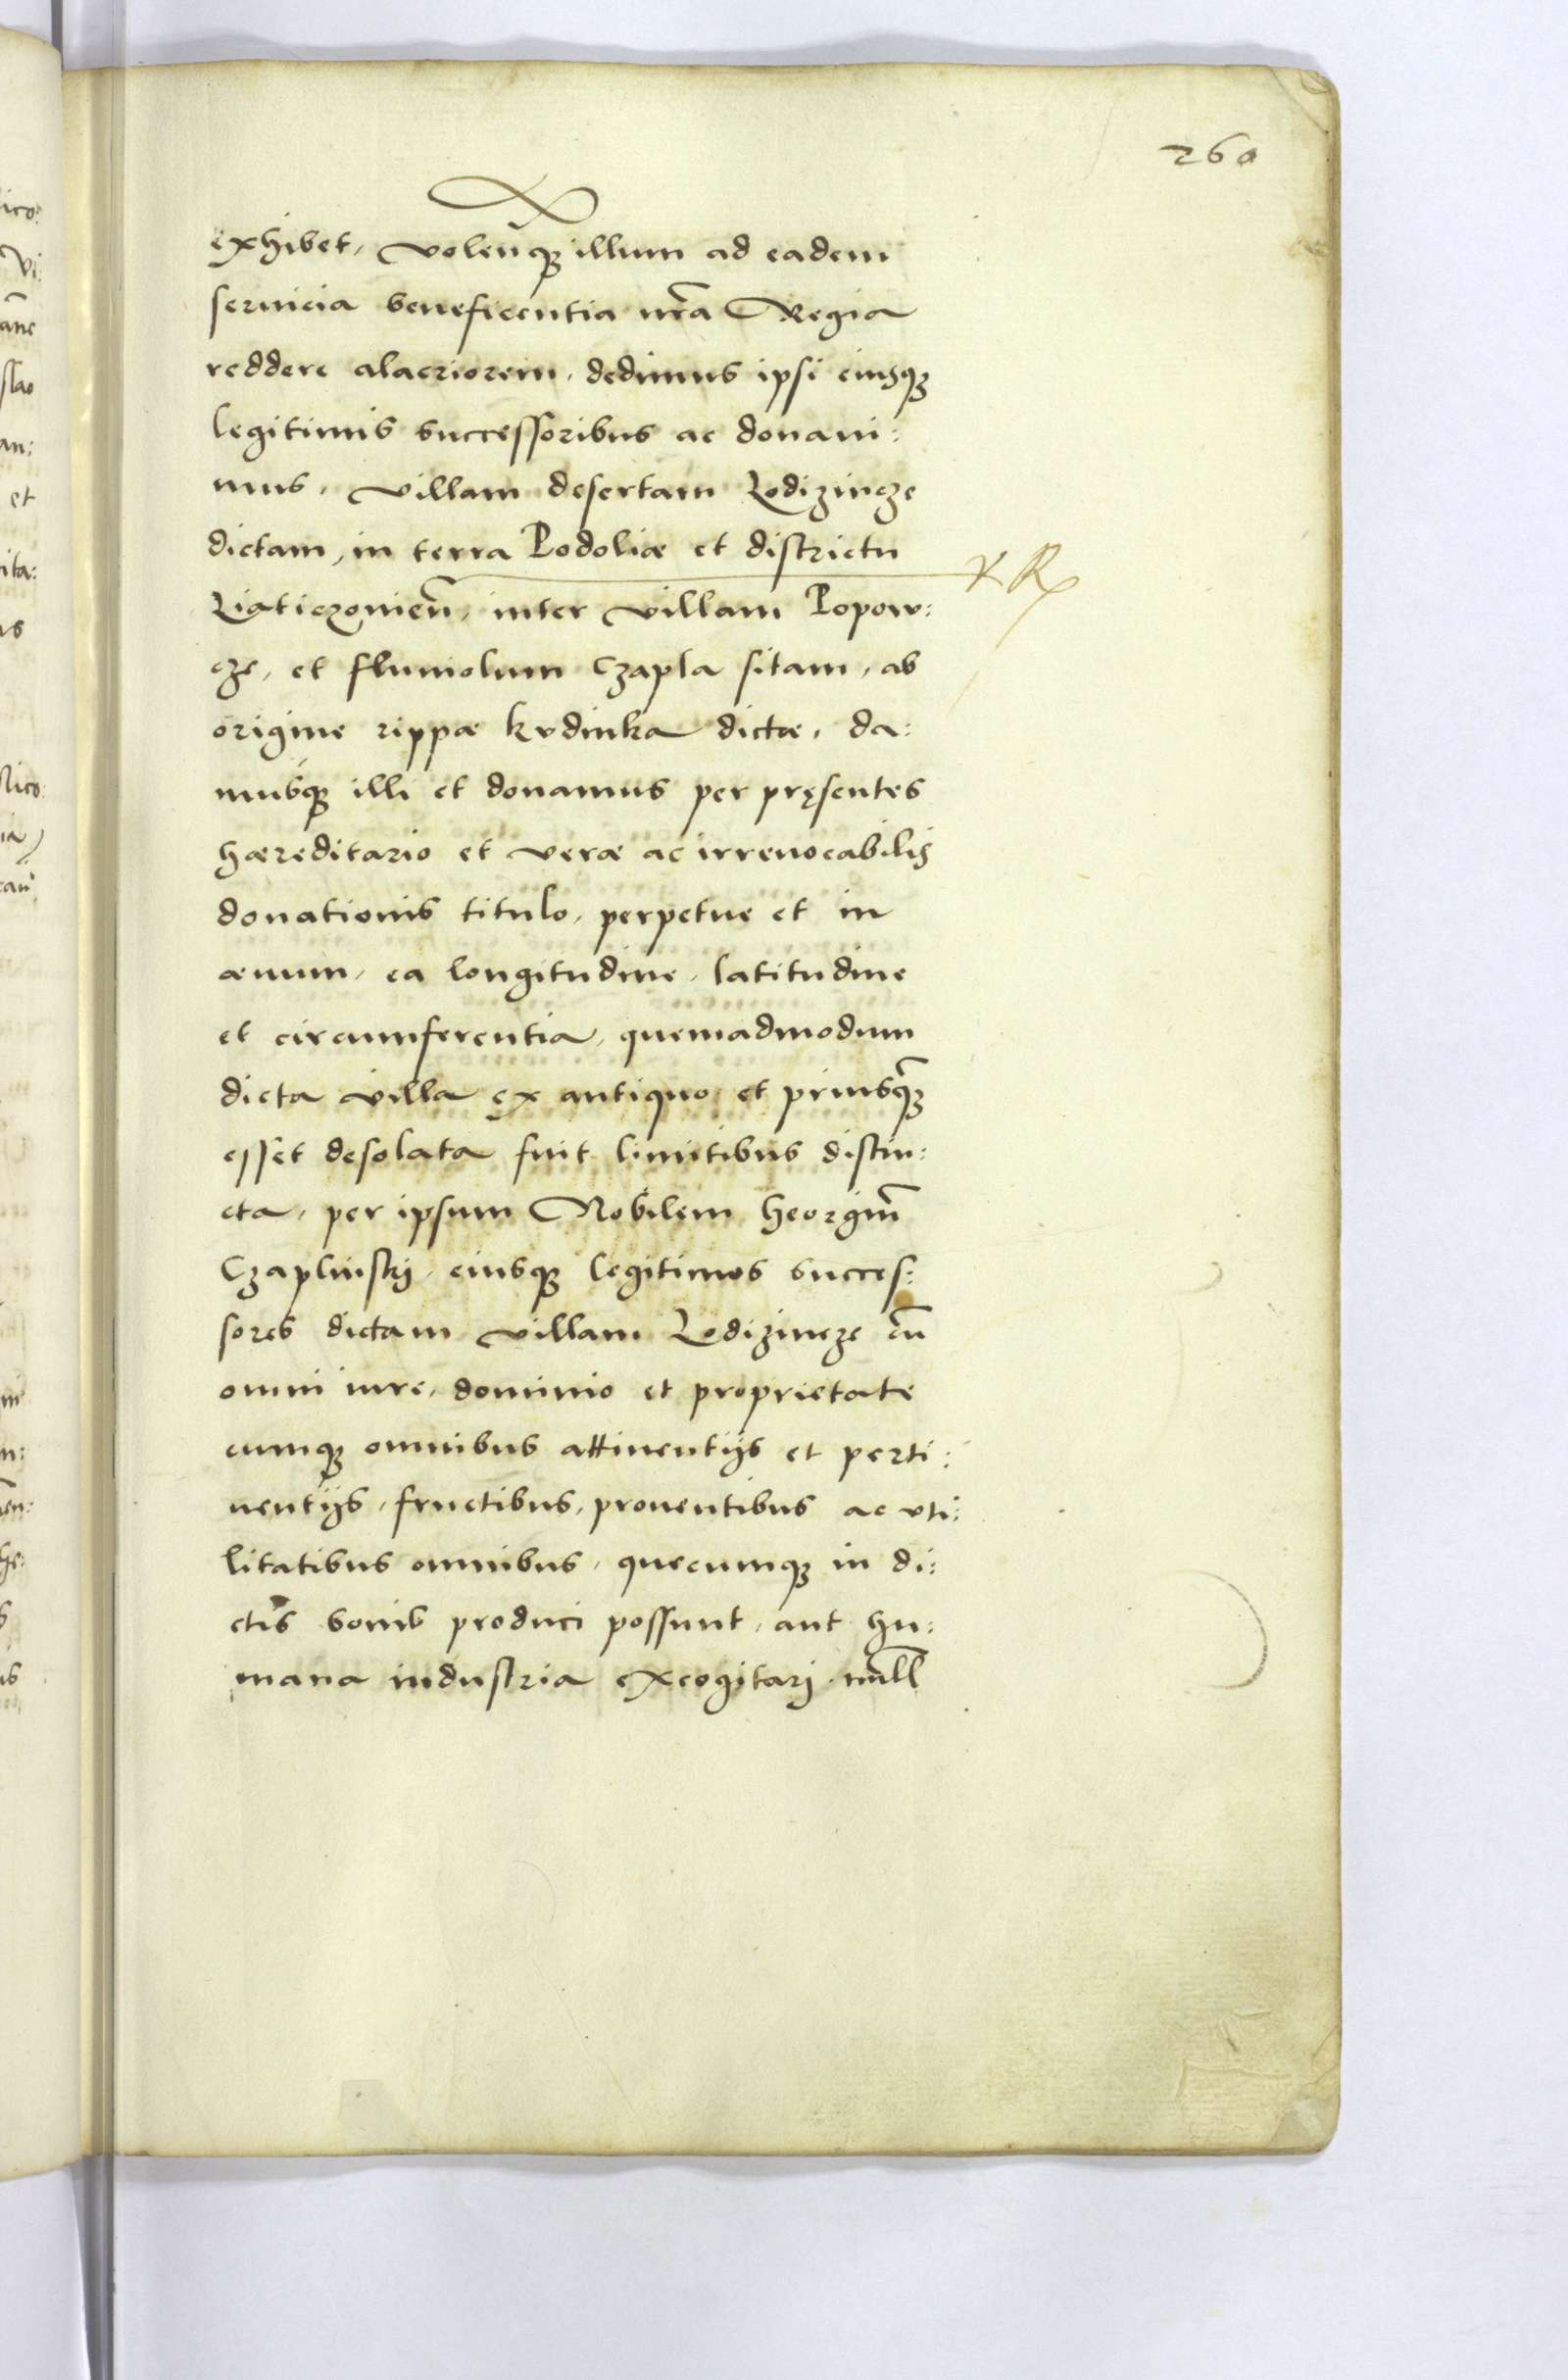 260
exhibet, volen̄qꝫ illum ad eadem
seruicia beneficentia nr̃a Regia
reddere alacriorem, dedimus ipsi eiusqꝫ
legitimis successoribus ac donaui:
mus, villam desertam Lodizincze
dictam, in terra Podoliæ et districtu
Liaticzouien̄, inter villam Popow:
cze, et fluuiolum Czapla sitam, ab
origine rippæ kvdinka dictæ, da:
musqꝫ illi et donamus per pręsentes
hæreditario et veræ ac irreuocabilis
donationis titulo, perpetue et in
æuum, ea longitudine, latitudine
et circumferentia, quemadmodum
dicta villa ex antiquo et priusq̃
esset desolata fuit limitibus distin:
cta, per ipsum Nobilem Heorgiu̅
Czaplinskj, eiusqꝫ legitimos succes:
sores dictam villam Lodizincze cu̅
omni iure, dominio et proprietate
cumqꝫ omnibus attinentijs et perti:
nentijs, fructibus, prouentibus ac vti:
litatibus omnibus, quecumqꝫ in di:
ctis bonis produci possunt, aut hu:
mana industria excogitarj null̅